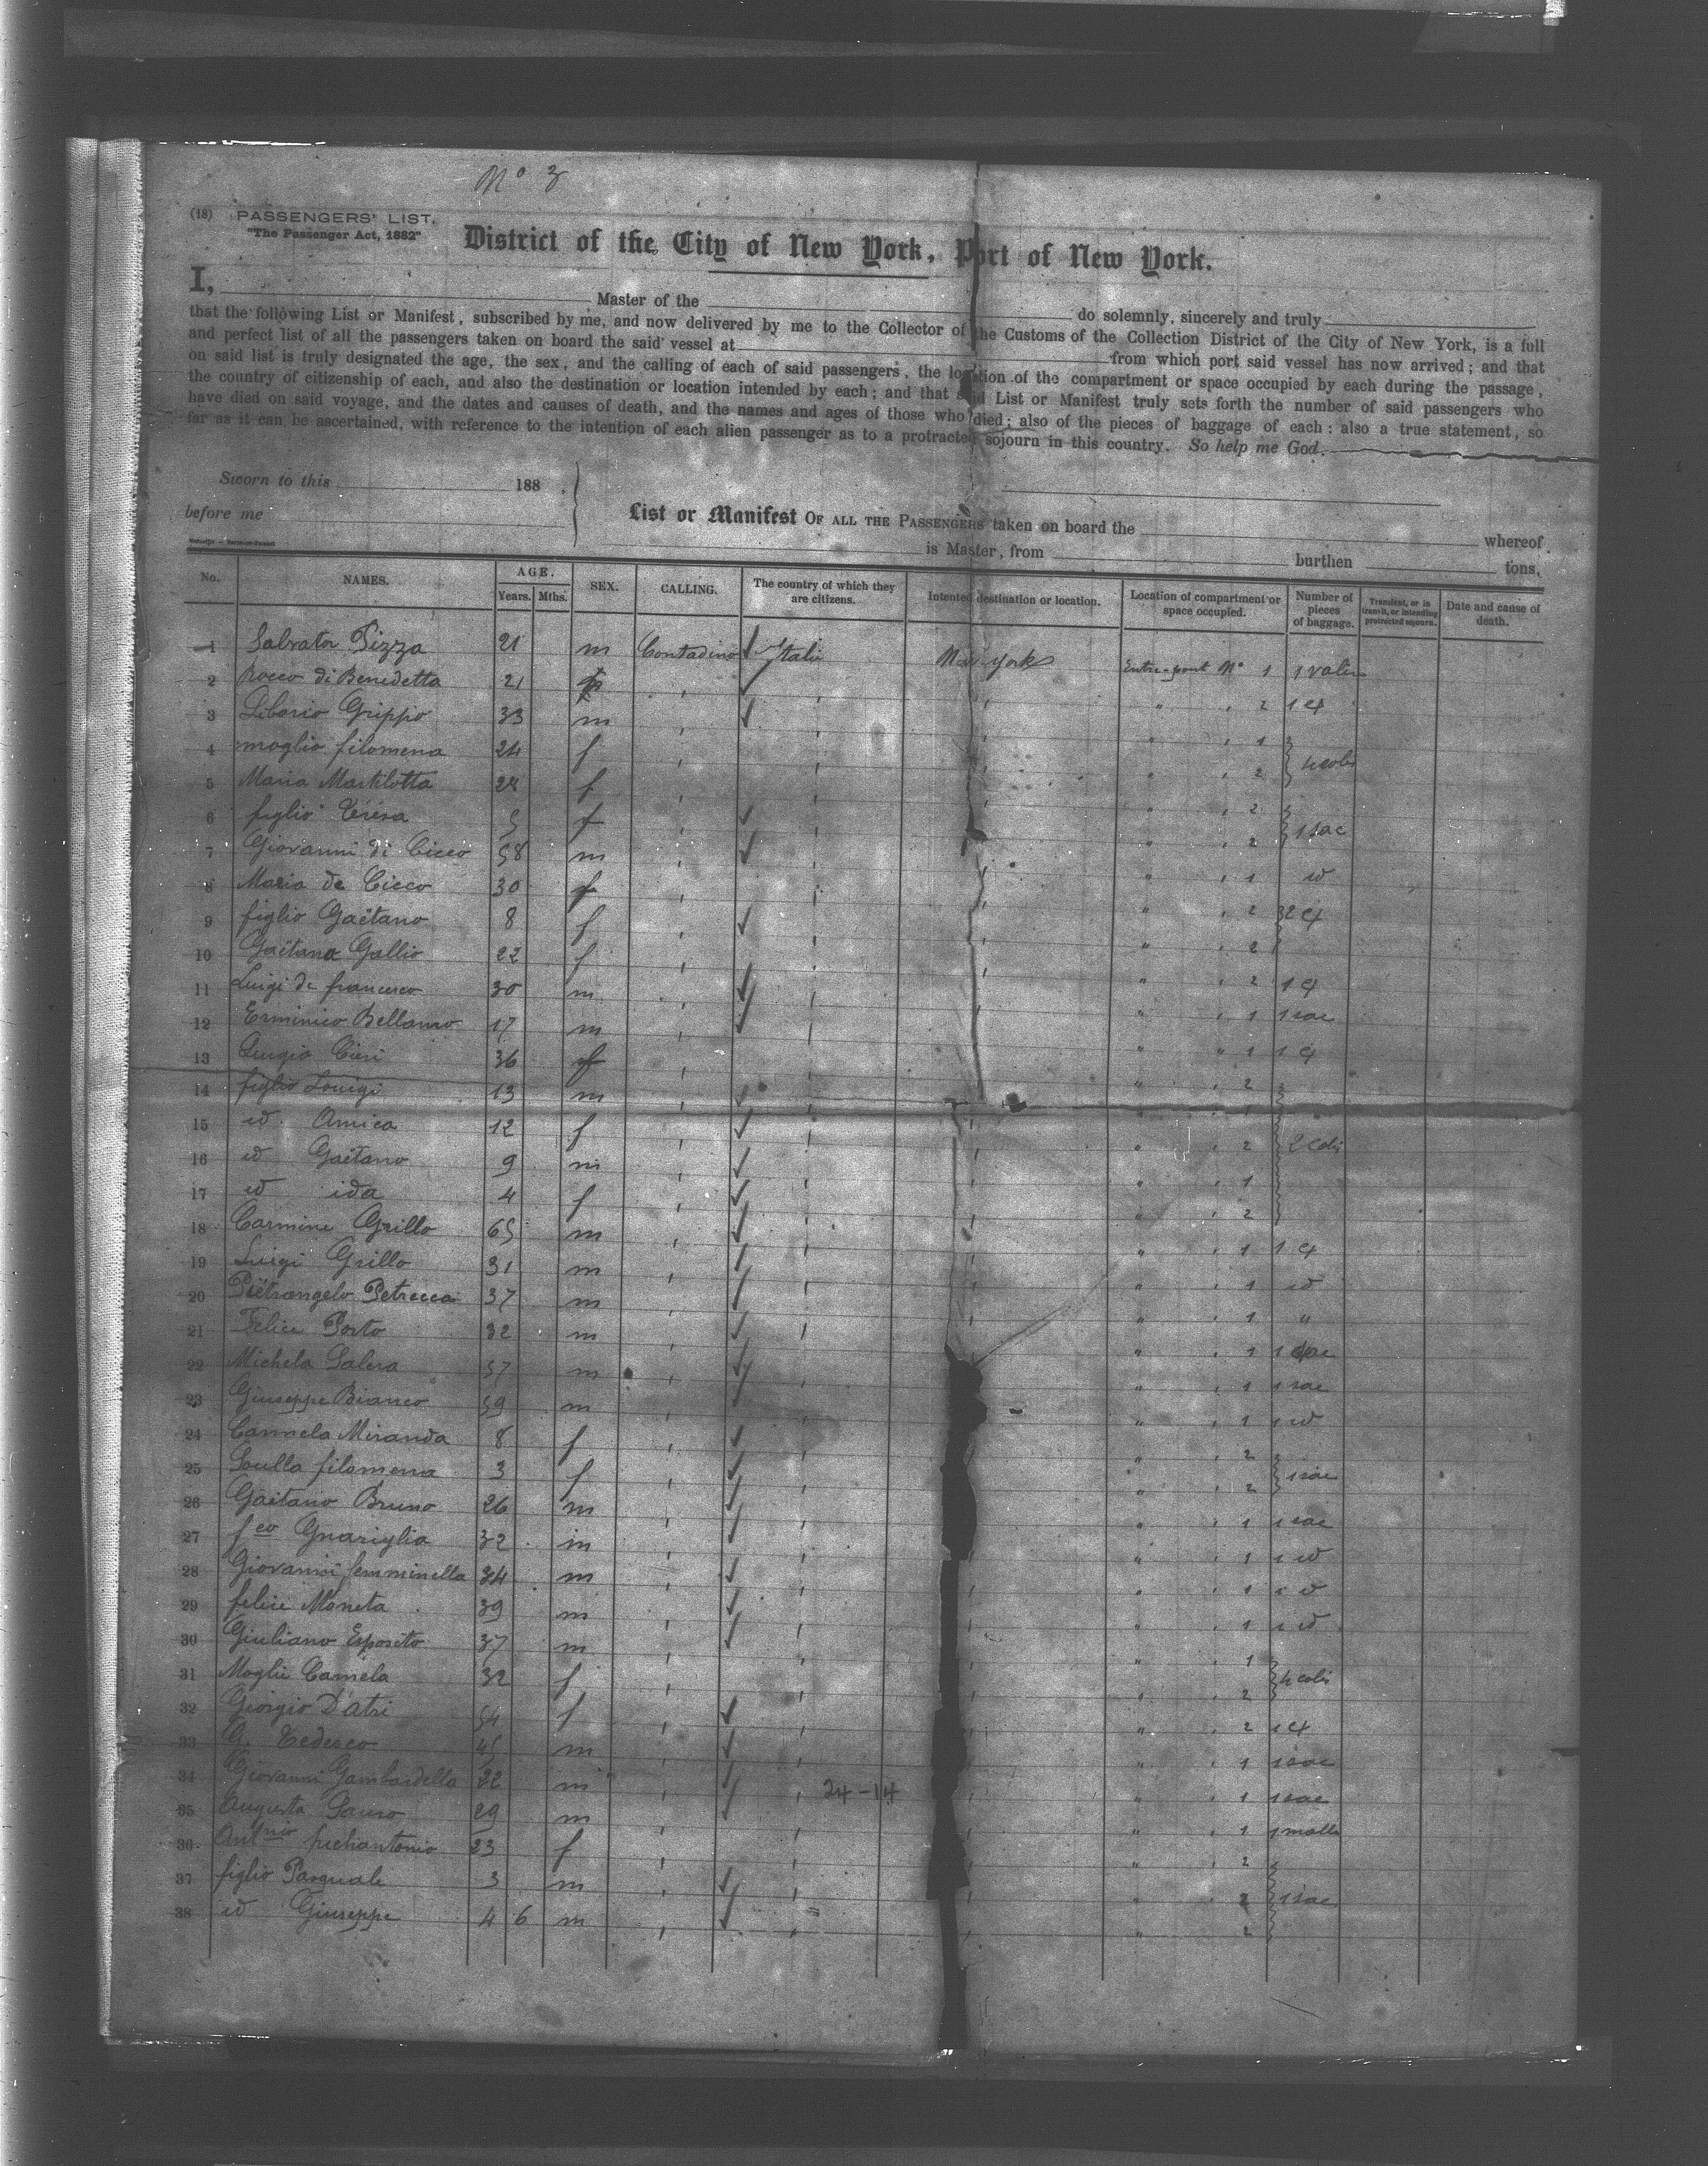 No 3
(18) PASSENGERS' LIST.
"The Passenger Act, 1882"
District of the City of New York, Port of New York.
I, Master of the do solemnly, sincerely and truly
that the following List or Manifest, subscribed by me, and now delivered by me to the Collector of the Customs of the Collection District of the City of New York, is a full
and perfect list of all the passengers taken on board the said vessel at from which port said vessel has now arrived; and that
on said list is truly designated the age, the sex, and the calling of each of said passengers, the location of the compartment or space occupied by each during the passage,
the country of citizenship of each, and also the destination or location intended by each; and that said List or Manifest truly sets forth the number of said passengers who
have died on said voyage, and the dates and causes of death, and the names and ages of those who died; also of the pieces of baggage of each; also a true statement, so
far as it can be ascertained, with reference to the intention of each alien passenger as to a protracted sojourn in this country. So help me God.
Sworn to this 188 .
before me
List or Manifest OF ALL THE PASSENGERS taken on board the whereof
is Master, from burthen tons.
No. NAMES. AGE. Years. Mths. SEX. CALLING. The country of which they are citizens. Intented destination or location. Location of compartment or space occupied. Number of pieces of baggage. Transient, or in transit, or intending protracted sojourn. Date and cause of death.
1 Salvator Pizza 21 m Contadino Italie New-york Entre-pont No 1 1 valise
2 Rocco di Benedetta 21 " 2 1 id
3 Liborio Grippo 33 m " 1
4 moglie filomena 24 f " 2 4 colis
5 Maria Martilotta 28 f " 2
6 figlio Térésa 5 f " 2 1 sac
7 Giovanni di Cicco 58 m " 1 id
8 Maria de Cicco 30 f " 2 2 id
9 figlio Gaëtano 8 f " 2
10 Gaëtana Gallio 22 f " 2 1 id
11 Luigi de francesco 30 m " 1 1 sac
12 Erminico Bellamo 17 m " 1 1 id
13 36 f " 2
14 figlio Louigi 13 m
15 id. Amica 12 f " 2 2 colis
16 id Gaëtano 9 m " 1
17 id ida 4 f " 2
18 Carmine Grillo 65 m " 1 1 id
19 Luigi Grillo 31 m " 1 id
20 Piëtrangelo Petrecca 37 m " 1 "
21 Felice Porto 32 m " 1 1 sac
22 Michela Salera 57 m " 1 1 sac
23 Giuseppe Bianco 59 m " 1 1 id
24 Carmela Miranda 8 f " 2
25 filomena 3 f " 2 1 sac
26 Gaëtano Bruno 26 m " 1 1 sac
27 fco Gnariglia 32 m " 1 1 id
28 Giovanni femminella 34 m " 1 1 id
29 felice Moneta 39 m " 1 1 id
30 Giuliano Esposito 37 m " 1
31 Moglie Camela 32 f " 2 4 colis
32 Giorgio Datri 54 f " 2 1 id
33 G. Tedesco 45 m " 1 1 sac
34 Giovanni Gambardella 22 m 24-14 " 1 1 sac
35 Augusta Sauro 29 m " 1 1 malle
36 23 f " 2
37 figlio Pasquale 3 m " 2 1 sac
38 id Giuseppe 4 6 m " 2